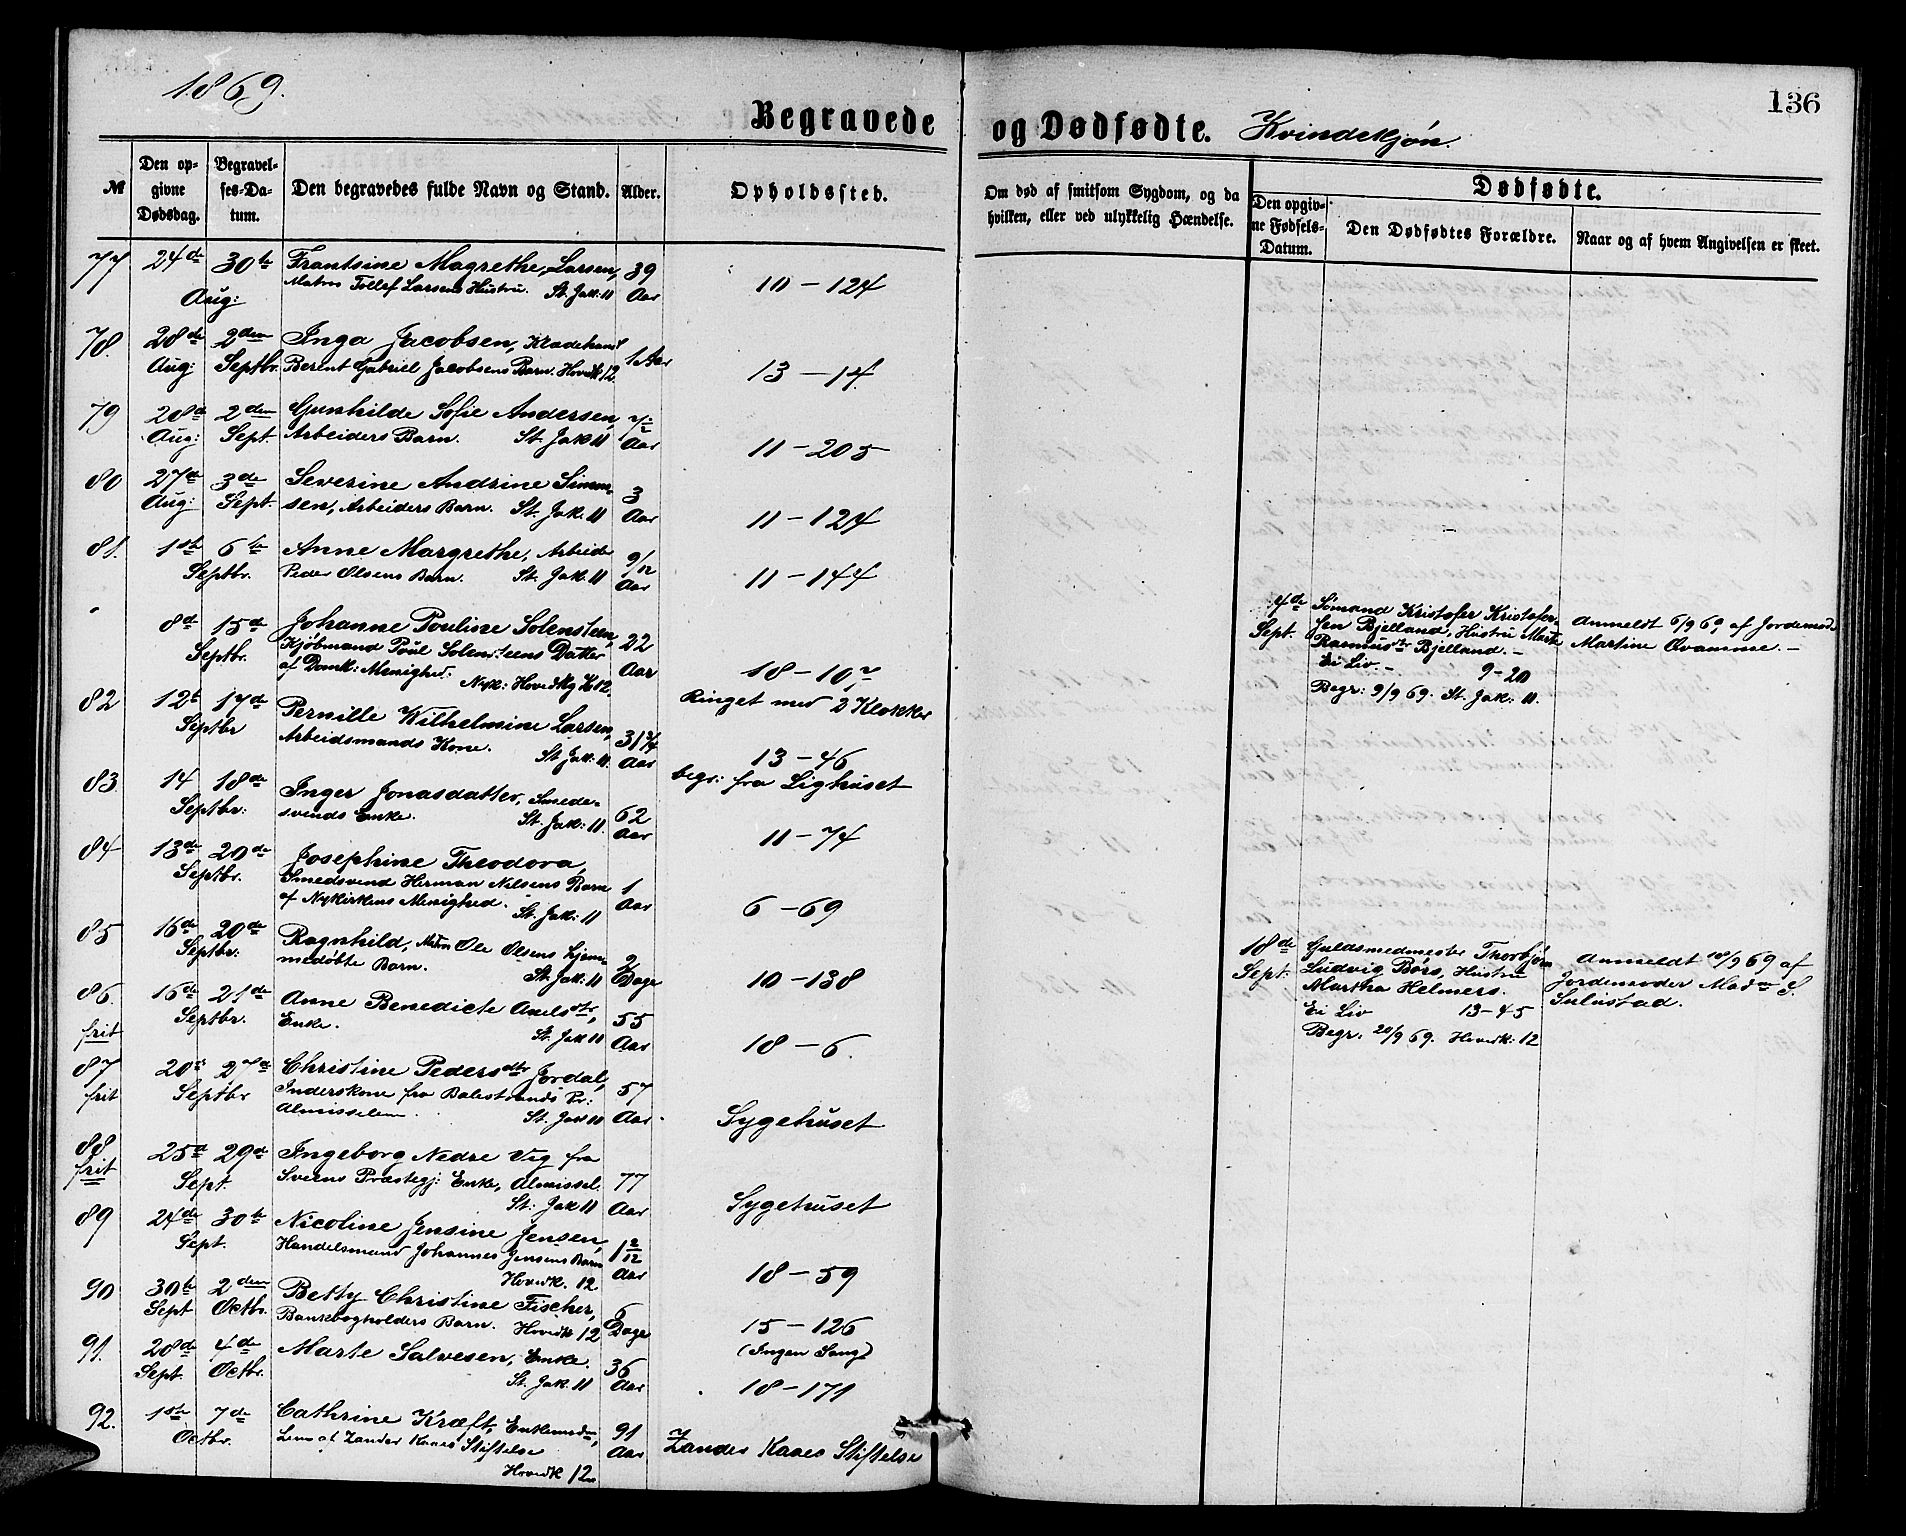 1869.
136
Begravede og Dødfødte. Kvindekjøn.
№
Den opgivne Dødsdag.
Begravelses-Datum.
Den begravedes fulde Navn og Stand.
Alder.
Opholdssted.
Om død af smitsom Sygdom, og da hvilken, eller ved ulykkelig Hændelse.
Dødfødte.
Den opgivne Fødsels-Datum.
Den Dødfødtes Forældre.
Naar og af hvem Angivelsen er skeet.
77 24de 30te Frantsine Magrethe Larsen, 39
Aug: Matros Tollef Larsens Hustru. St. Jak: 11 Aar 10-124
78. 28de 2den Inga Jacobsen, Kladehand
Aug: Septbr. Berent Gabriel Jacobsens Barn. Hovedk 12. 1 Aar 13-14
79 28de 2den Gunhilde Sofie Andersen, 7/2
Aug: Sept. Arbeiders Barn. St. Jak 11 Aar 11-205
80 27de 3de Severine Andrine Simon- 3
Aug: Sept. sen, Arbeiders Barn. St. Jak. 11 Aar 11-124
81. 1ste 6te Anne Margrethe, Arbeider 9/12
Septbr. Peder Olsens Barn. St. Jak. 11 Aar 11-144
8de 15de Johanne Pouline Solensteen, 22
Septbr. Kjøbmand Poul Solensteens Datter
af Domk: Menighed. Aar 18-10,
Nyk: Hovedkg 12. Ringet med 2 Klokker
82 12te 17de Pernille Wilhelmine Larsen, 31 3/4
Septbr Arbeidsmands Kone. St. Jak: 11. Aar 13-46
begr: fra Lighuset
83 14 18de Inger Jonasdatter, Smede- 62
Septbr: svends Enke. St. Jak: 11. Aar 11-74
84 13de 20de Josephine Theodora,
Septbr. Smedsvend Herman Nilsens Barn 1
af Nykirkens Menighed. St. Jak: 11 Aar 6-69
85 16de 20de Ragnhild, Matros Ole Olsens hjem-
Septbr: medøbte Barn. St. Jak: 11 2 Dage 10-138
86. 16de 21de Anne Benedicte Axelsdtr, 55
frit Septbr. Enke. St. Jak 11 Aar 18-6.
87 20de 27de Christine Pedersdtr Jordal, 57
frit Septbr Inderskone fra Balestrands Pr:
Almisselem. St. Jak 11 Aar. Sygehuset
88 25de 29de Ingeborg Nedre Vig fra
frit Sept. Sveens Præstegj: Enke, Almissel. 77
St: Jak 11 Aar Sygehuset
89 24de 30te Nicoline Jensine Jensen, 1 2/12
Sept. Handelsmand Johannes Jensens Barn
Hovedk. 12 Aar 18-59
90 30te 2den Betty Christine Fischer, 6
Sept Octbr. Bankbogholders Barn. Hovedk 12 Dage 15-126
(Ingen Sang)
91. 28de 4de Marte Salvesen, Enke. 36
Sept. Octbr. St. Jak. 11 Aar 18-171
92. 1ste 7de Cathrine Kræft, Enkemed- 91
Octbr. Lem af Zander Kaaes Stiftelse Aar Zander Kaaes Stiftelse
Hovedk 12
4de Sømand Kristofer Kristofer-
Sept. sen Bjelland, Hustru Marte
Rasmusdtr Bjelland. -
Ei Liv. - 9-20
Begr: 9/9 69. St. Jak: 11.
Anmeldt 6/9 69 af Jordemoder
Martine Qvamme. -
18de Guldsmedmester Thorbjørn
Sept. Ludvig Børs, Hustru
Martha Helmers.
Ei Liv 13-45
Begr. 20/9 69. Hovedk: 12
Anmeldt 18/9 69 af
Jordemoder Madm S.
Sulustad.